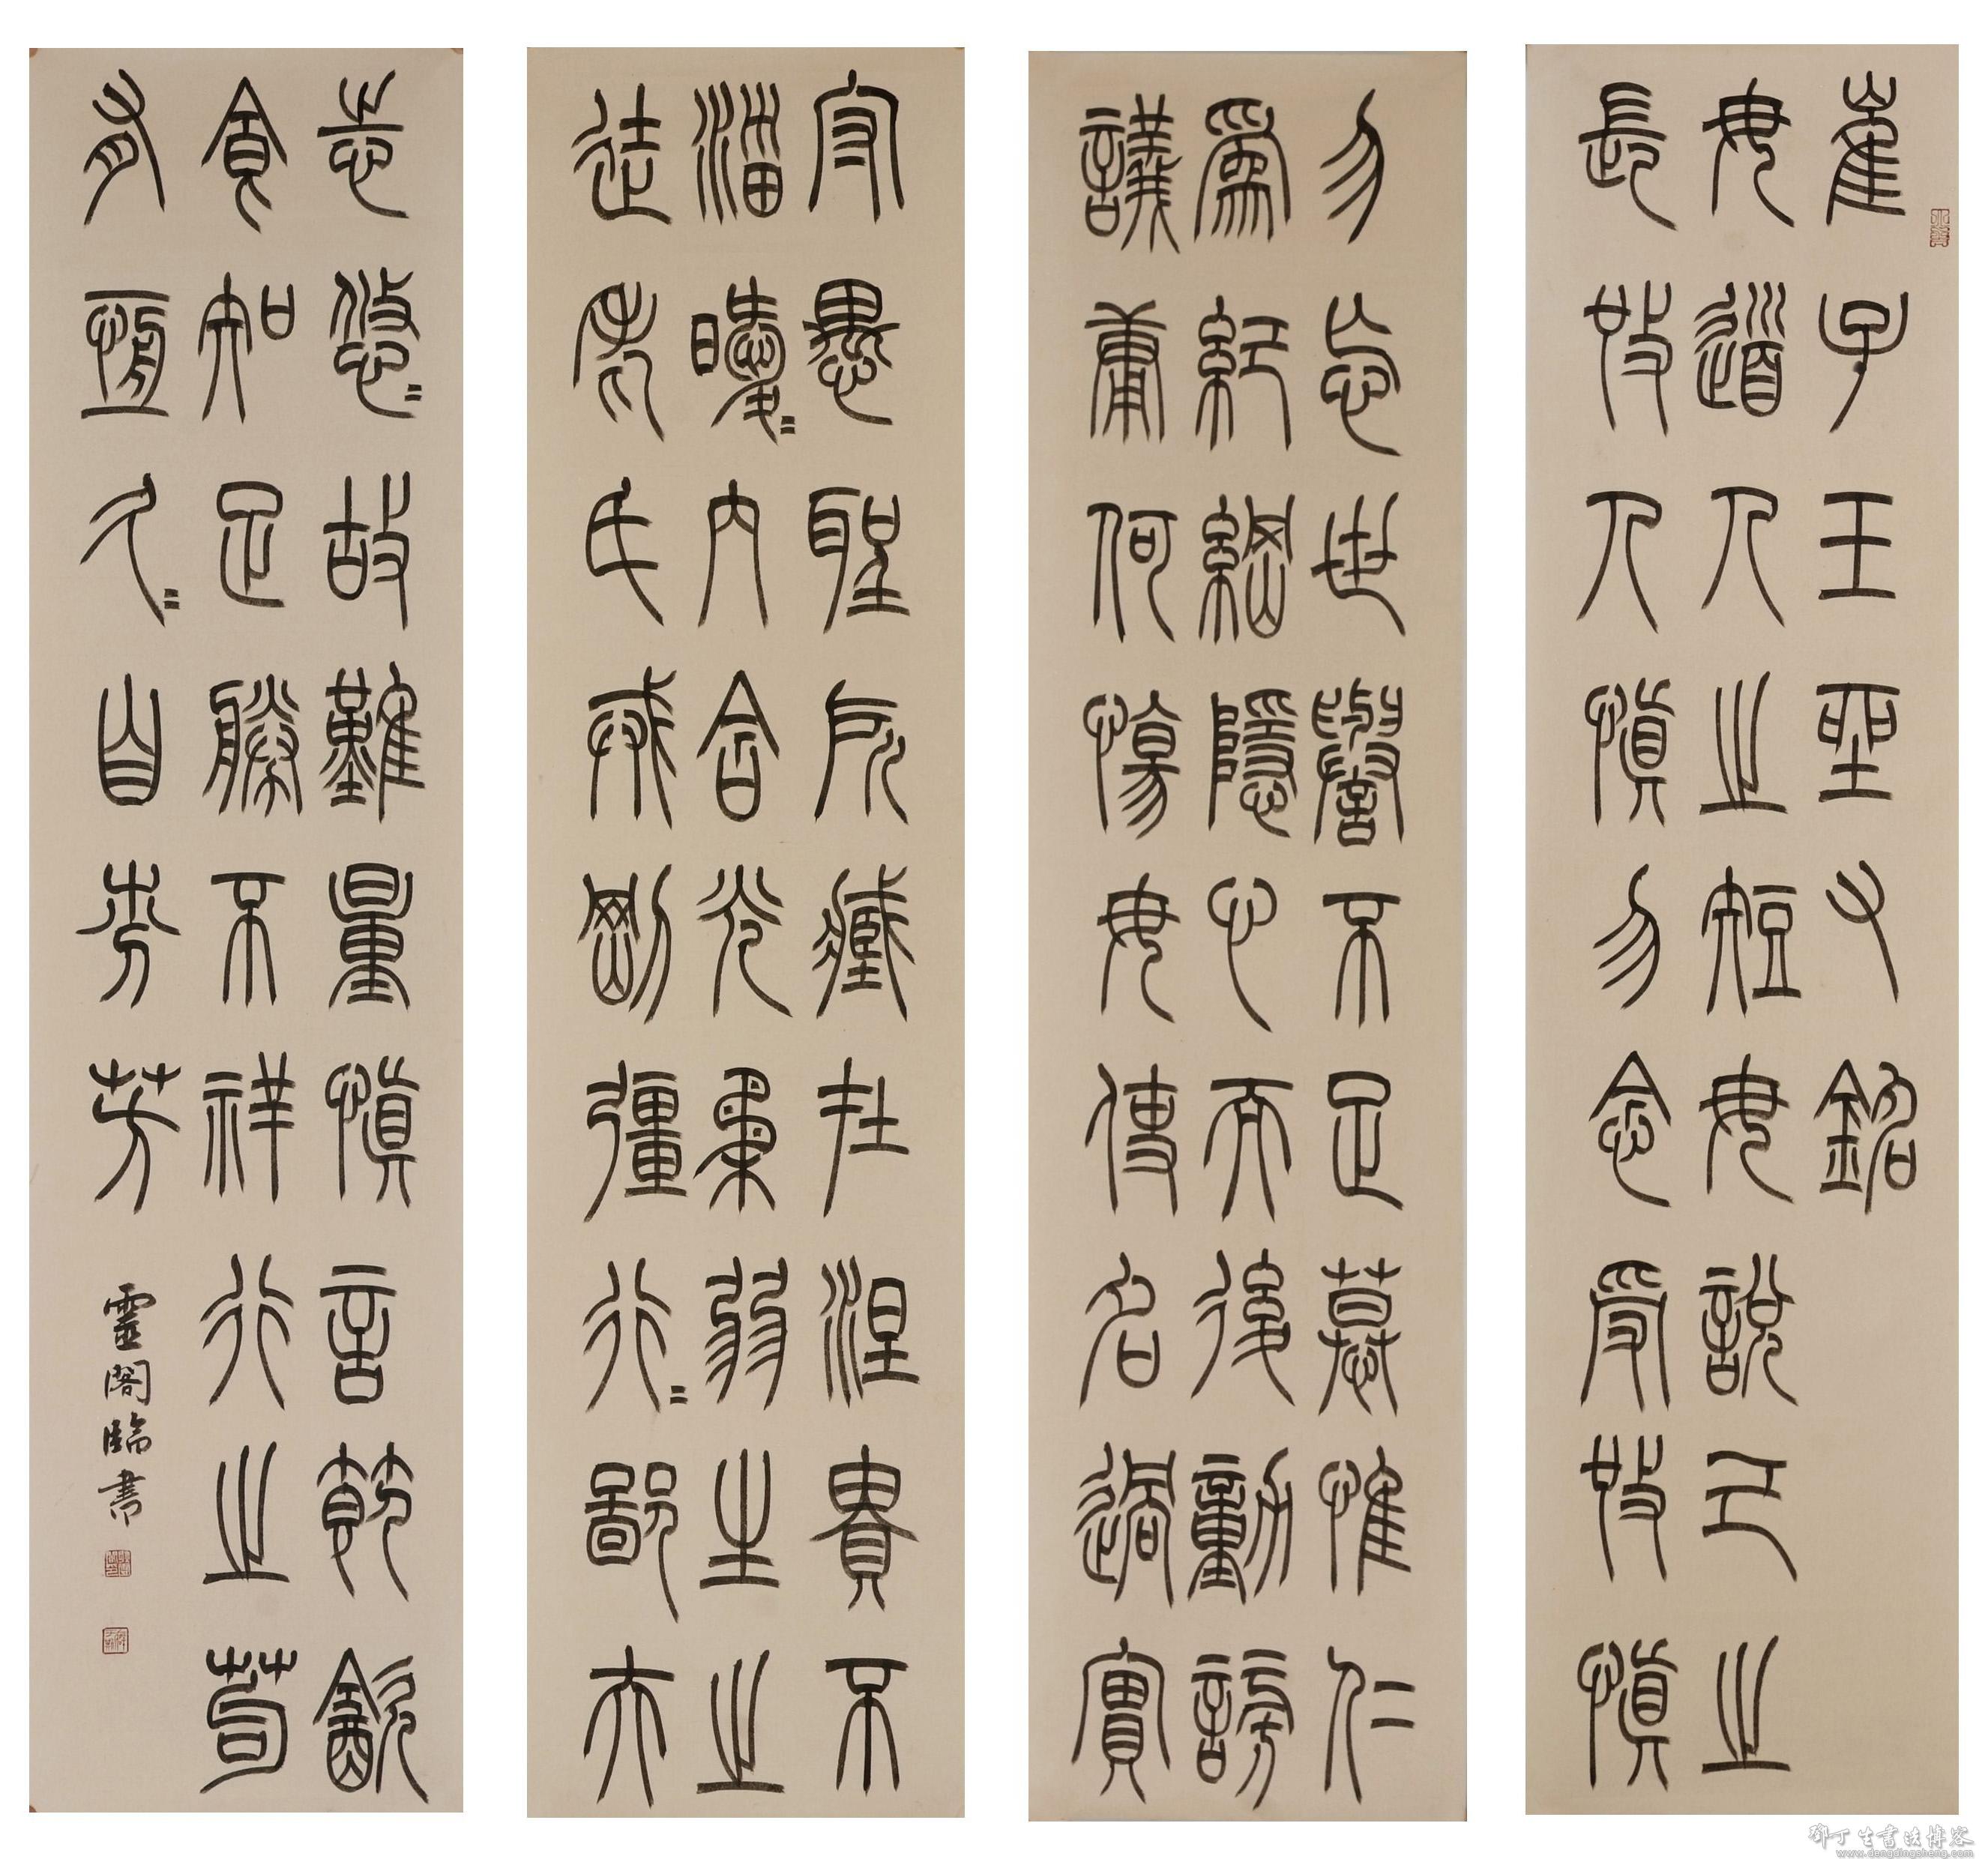 崔子玉座右銘
毋道人之短毋說己之
長施人慎勿念受施慎
勿忘世譽不足慕惟仁
為紀綱隱心而後動謗
議庸何傷毋使名過實
守愚聖所臧在涅貴不
淄曖〻內含光柔弱生之
徒老氏戒剛彊行〻鄙夫
志悠〻故難量慎言節飲
食知足勝不祥行之苟
有恆久〻自芬芳
靈閣臨書
鄧丁生書法博客
www.dengdingsheng.com